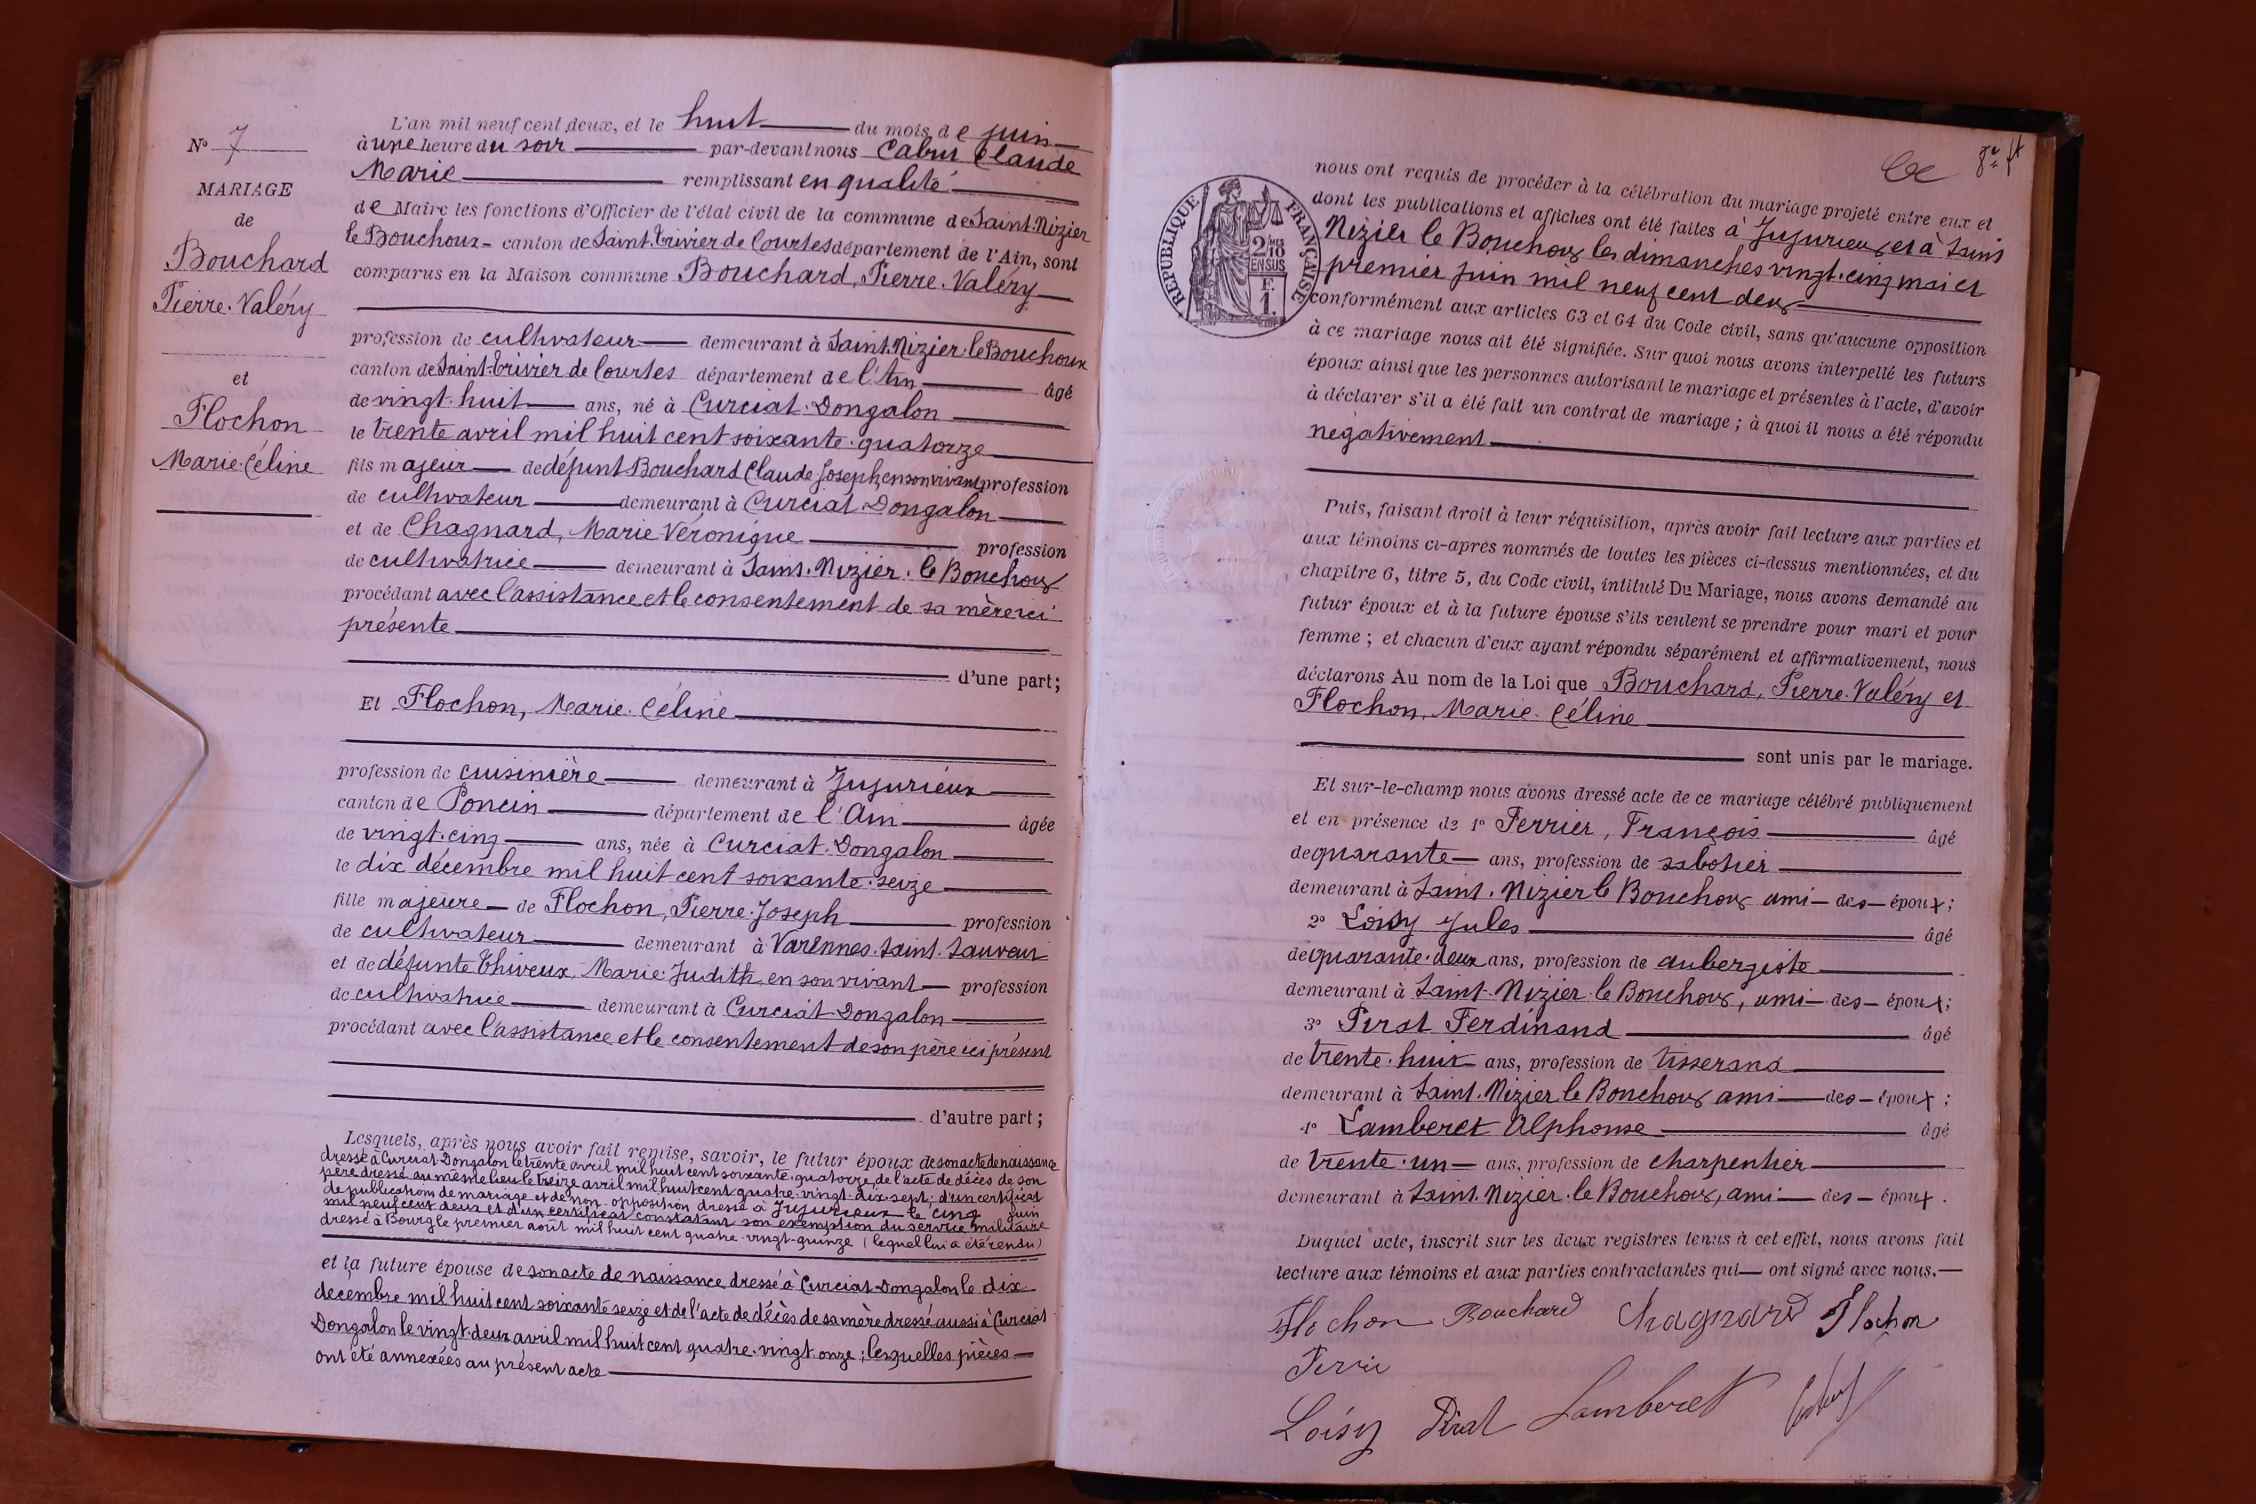 N° 7
MARIAGE
de
Bouchard
Pierre-Valéry
et
Flochon
Marie-Céline
L'an mil neuf cent deux, et le huit du mois de juin
à une heure du soir par-devant nous Cabut Claude
Marie remplissant en qualité
de Maire les fonctions d'Officier de l'état civil de la commune de Saint-Nizier
le Bouchoux - canton de Saint-Trivier de Courtes département de l'Ain, sont
comparus en la Maison commune Bouchard, Pierre-Valéry
profession de cultivateur demeurant à Saint-Nizier-le Bouchoux
canton de Saint-Trivier de Courtes département de l'Ain âgé
de vingt-huit ans, né à Curciat-Dongalon
le trente avril mil huit cent soixante-quatorze
fils majeur de défunt Bouchard Claude Joseph, en son vivant profession
de cultivateur demeurant à Curciat Dongalon
et de Chagnard, Marie Véronique profession
de cultivatrice demeurant à Saint-Nizier-le Bouchoux
procédant avec l'assistance et le consentement de sa mère ici
présente
d'une part;
Et Flochon, Marie-Céline
profession de cuisinière demeurant à Jujurieux
canton de Poncin département de l'Ain âgée
de vingt-cinq ans, née à Curciat-Dongalon
le dix décembre mil huit cent soixante-seize
fille majeure de Flochon, Pierre-Joseph profession
de cultivateur demeurant à Varennes-Saint-Sauveur
et de défunte Thiveux, Marie-Judith, en son vivant profession
de cultivatrice demeurant à Curciat Dongalon
procédant avec l'assistance et le consentement de son père ici présent
d'autre part;
Lesquels, après nous avoir fait remise, savoir, le futur époux de son acte de naissance
dressé à Curciat Dongalon le trente avril mil huit cent soixante-quatorze, de l'acte de décès de son
père dressé au même lieu le treize avril mil huit cent quatre-vingt-dix-sept; d'un certificat
de publications de mariage et de non-opposition dressé à Jujurieux le cinq juin
mil neuf cent deux et d'un certificat constatant son exemption du service militaire
dressé à Bourg le premier août mil huit cent quatre-vingt-quinze (lequel lui a été rendu)
et la future épouse de son acte de naissance dressé à Curciat-Dongalon le dix
décembre mil huit cent soixante seize et de l'acte de décès de sa mère dressé aussi à Curciat
Dongalon le vingt-deux avril mil huit cent quatre-vingt onze; lesquelles pièces
ont été annexées au présent acte
RÉPUBLIQUE FRANÇAISE
2/10 EN SUS
F. 1.
nous ont requis de procéder à la célébration du mariage projeté entre eux et
dont les publications et affiches ont été faites à Jujurieux et à Saint
Nizier le Bouchoux les dimanches vingt-cinq mai et
premier juin mil neuf cent deux
conformément aux articles 63 et 64 du Code civil, sans qu'aucune opposition
à ce mariage nous ait été signifiée. Sur quoi nous avons interpellé les futurs
époux ainsi que les personnes autorisant le mariage et présentes à l'acte, d'avoir
à déclarer s'il a été fait un contrat de mariage; à quoi il nous a été répondu
négativement
Puis, faisant droit à leur réquisition, après avoir fait lecture aux parties et
aux témoins ci-après nommés de toutes les pièces ci-dessus mentionnées, et du
chapitre 6, titre 5, du Code civil, intitulé Du Mariage, nous avons demandé au
futur époux et à la future épouse s'ils veulent se prendre pour mari et pour
femme; et chacun d'eux ayant répondu séparément et affirmativement, nous
déclarons Au nom de la Loi que Bouchard, Pierre-Valéry et
Flochon, Marie-Céline
sont unis par le mariage.
Et sur-le-champ nous avons dressé acte de ce mariage célébré publiquement
et en présence de 1° Ferrier, François âgé
de quarante ans, profession de sabotier
demeurant à Saint-Nizier le Bouchoux ami des époux;
2° Loisy Jules âgé
de quarante-deux ans, profession de aubergiste
demeurant à Saint-Nizier-le Bouchoux, ami des époux;
3° Pirat Ferdinand âgé
de trente-huit ans, profession de tisserand
demeurant à Saint-Nizier le Bouchoux ami des époux;
4° Lamberet Alphonse âgé
de trente-un ans, profession de charpentier
demeurant à Saint-Nizier-le Bouchoux, ami des époux.
Duquel acte, inscrit sur les deux registres tenus à cet effet, nous avons fait
lecture aux témoins et aux parties contractantes qui ont signé avec nous.
Flochon Bouchard Chagnard Flochon
Ferrie
Loisy Pirat Lamberet